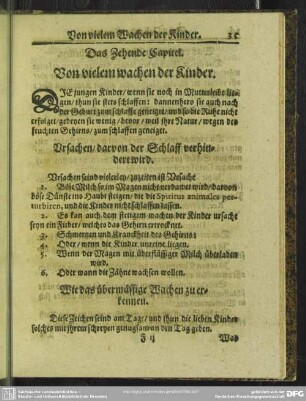 Von vielem Wachen der Kinder. 35
Das Zehende Capitel.
Von vielem wachen der Kinder.
DIE jungen Kinder/ wenn sie noch in Mutterleibe lie-
gen/ thun sie stets schlaffen: dannenhero sie auch nach
der Geburt zum schlaffe geneigt/ und so die Ruhe nicht
erfolget gedeyen sie wenig/ bevor/ weil ihre Natur/ wegen des
feuchten Gehirns/ zum schlaffen geneiget.
Ursachen/ darvon der Schlaff verhin-
dert wird.
Ursachen seind vielerley/ zuzeiten ist Ursache
1. Böse Milch so im Magen nicht verdauet wird/ darvon
böse Dünste ins Haubt steigen/ die die Spiritus animales per-
turbiren, und die Kinder nicht schlaffen lassen.
2. Es kan auch dem stetigem wachen der Kinder ursache
seyn ein Fieber/ welches das Gehirn ertrocknet.
3. Schmertzen und Kranckheit des Gehirns:
4. Oder/ wenn die Kinder unreine liegen.
5. Wenn der Magen mit überflüssiger Milch überladen
wird.
6. Oder wann die Zähne wachsen wollen.
Wie das übermässige Wachen zu er-
kennen.
Diese Zeichen seind am Tage/ und thun die lieben Kinder
solches mit ihrem schreyen genugsam an den Tag geben.
Was